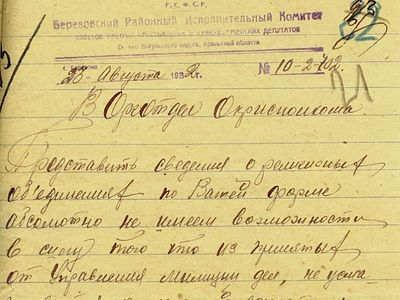 Р.С.Ф.С.Р.
Березовский Районный Исполнительный Комитет
СОВЕТОВ РАБОЧИХ КРЕСТЬЯНСКИХ И КРАСНОАРМЕЙСКИХ ДЕПУТАТОВ
Остяко Вогульского округа, Уральской области
с. Березово
23 " Августа 1932 г. № 10-2/102.
В Орготдел Окрисполкома.
Представить сведения о религиозных
об'единениях по Вашей форме
абсолютно не имеем возможности
в силу того что из принятых
от Управления милиции дел, не уста-